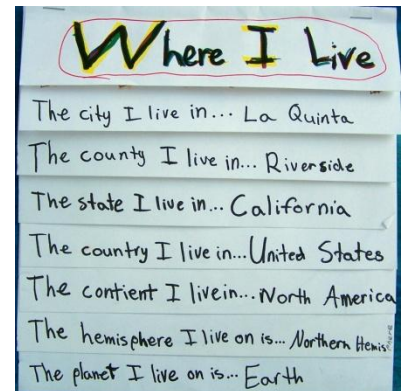 Where I Live
The city I live in... La Quinta
The county I live in... Riverside
The state I live in... California
The country I live in... United States
The contient I livein... North America
The hemisphere I live on is... Northern Hemisphere
The planet I live on is... Earth